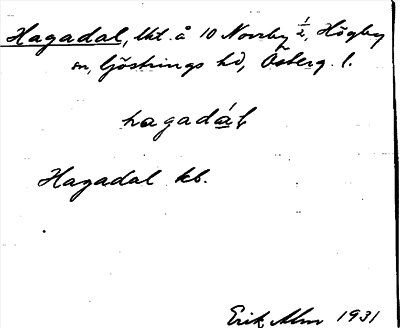 Hagadal, lht. å 10 Norrby ½, Högby
sn, Göstrings hd, Österg. l.
hagadáḷ
Hagadal kb.
Erik Alm 1931